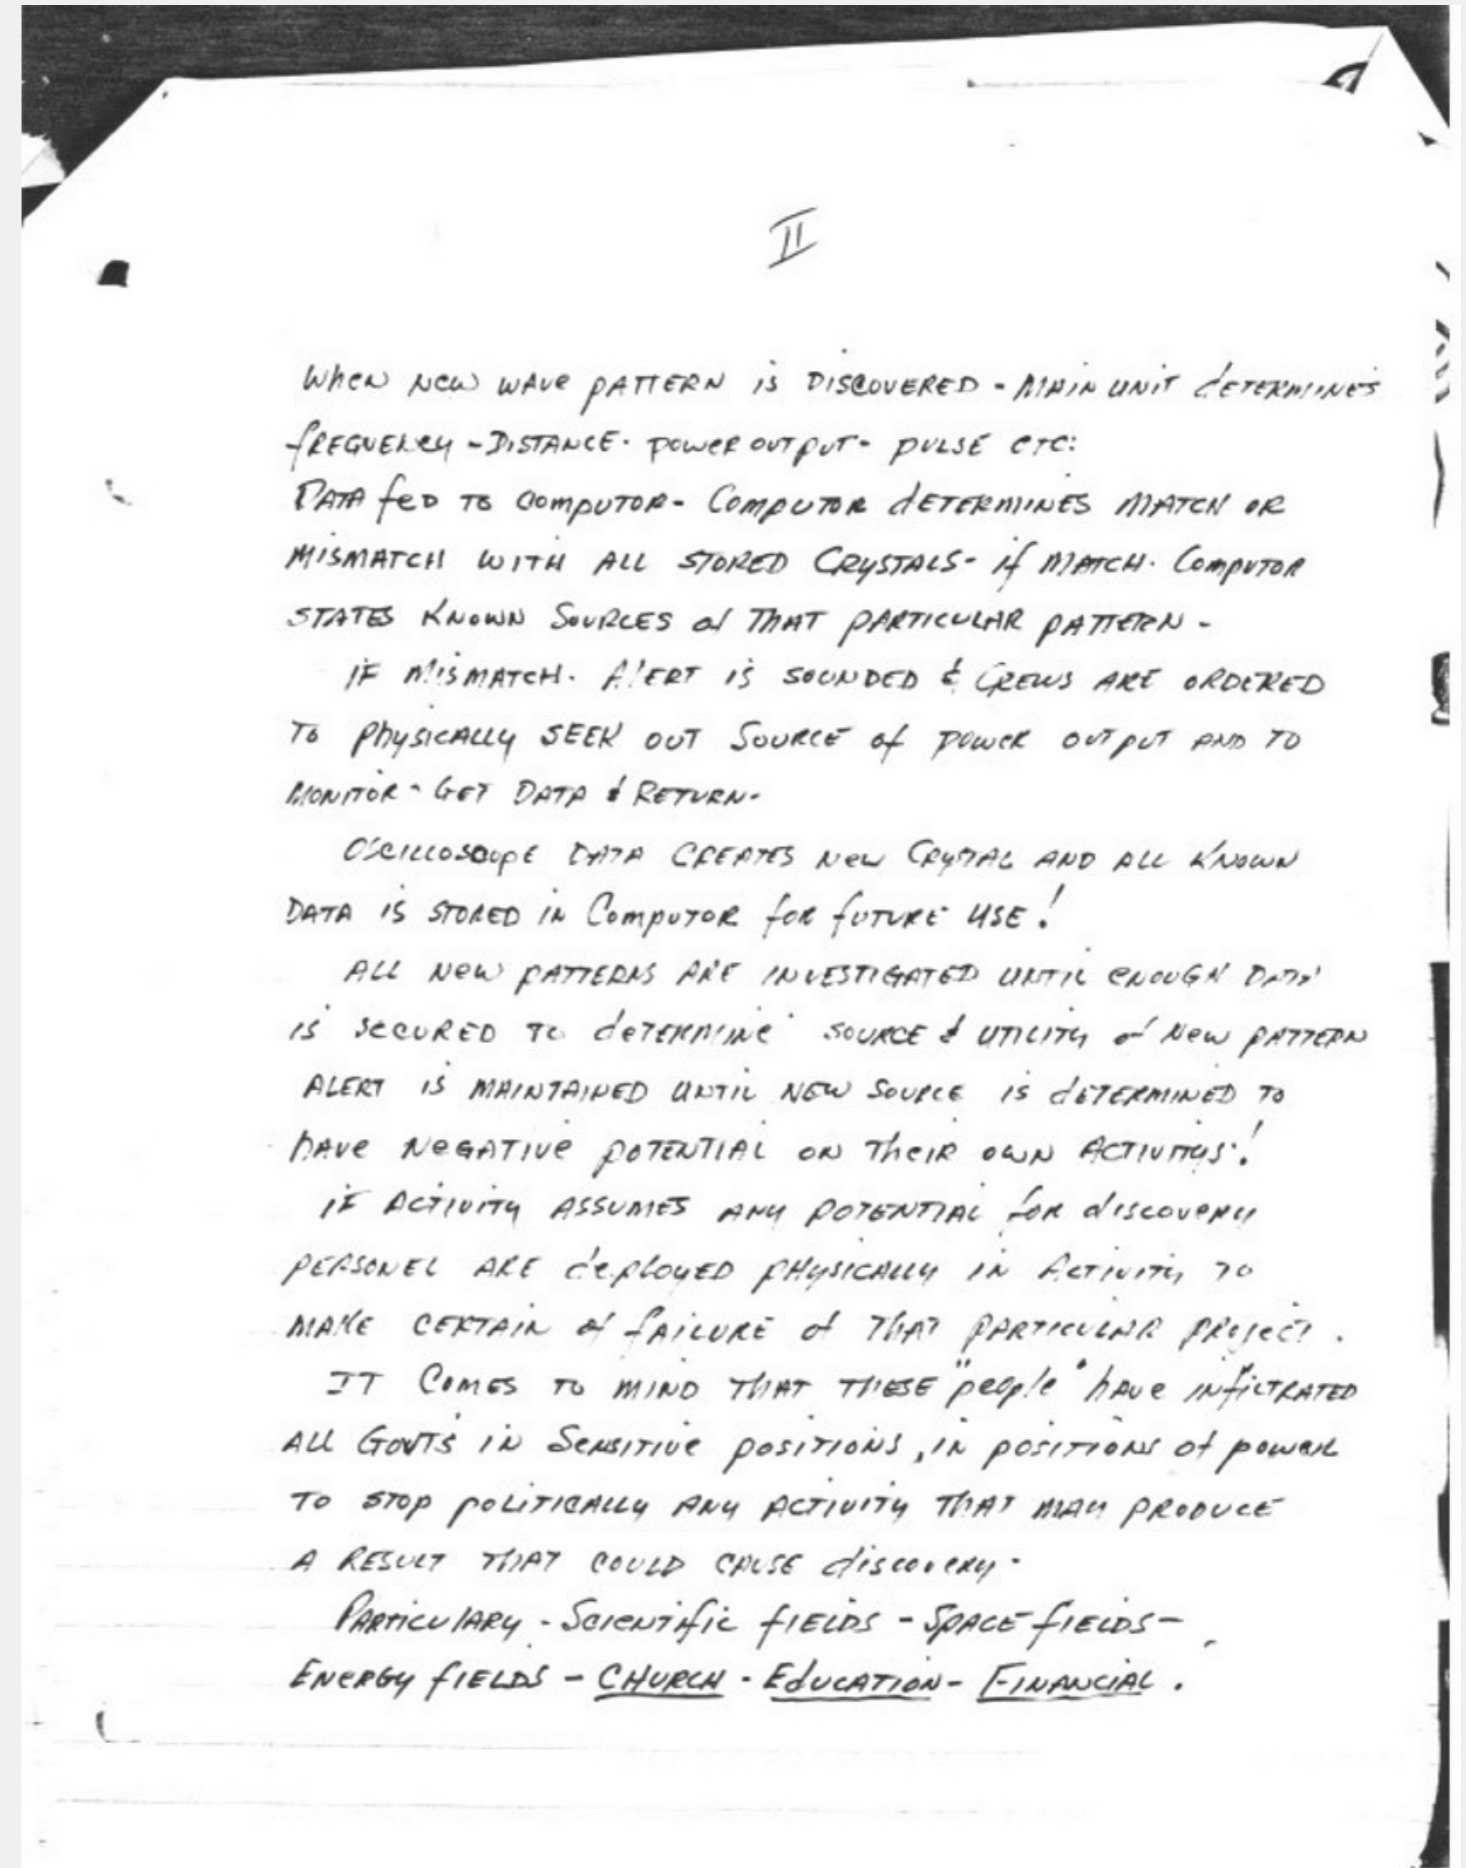 II
When new wave pattern is discovered - main unit determines
frequency - Distance - power output - pulse etc:
Data fed to computor - Computor determines match or
mismatch with all stored crystals - if match - Computor
states known sources of that particular pattern -
If mismatch - Alert is sounded & crews are ordered
to physically seek out source of power output and to
monitor - Get data & return -
Oscilloscope data creates new crystal and all known
data is stored in computor for future use!
All new patterns are investigated until enough data
is secured to determine source & utility of new pattern
Alert is maintained until new source is determined to
have negative potential on their own activitys!
If activity assumes any potential for discovery
personel are deployed physically in activity to
make certain of failure of that particular project.
It comes to mind that these "people" have infiltrated
all Govt's in sensitive positions, in positions of power
to stop politically any activity that may produce
a result that could cause discovery -
Particulary - Scientific fields - Space fields -
Energy fields - CHURCH - Education - Financial.